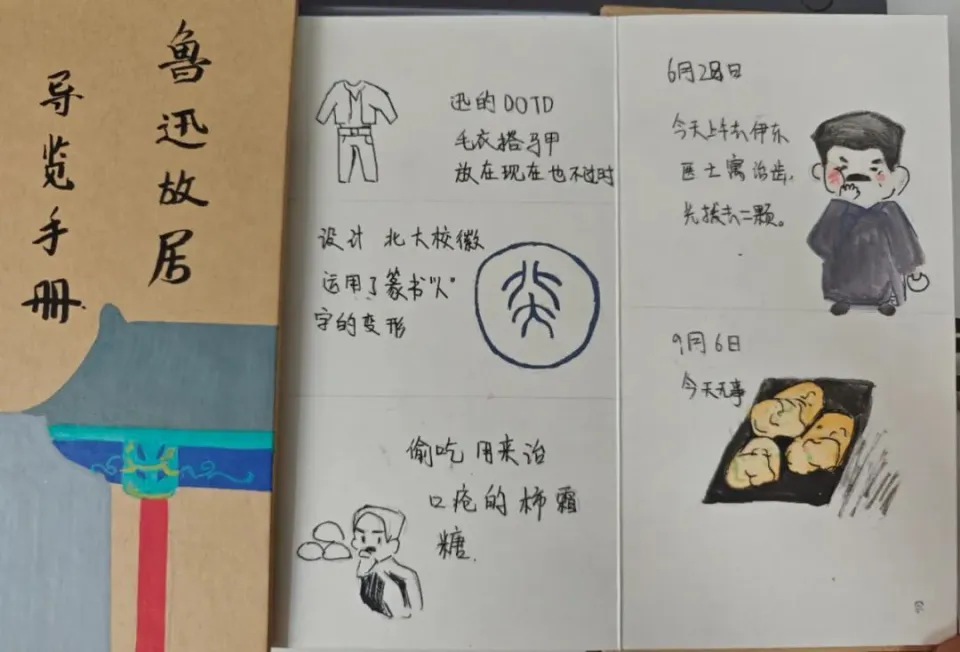 鲁迅故居
导览手册
迅的 OOTD
毛衣搭马甲
放在现在也不过时
设计 北大校徽
运用了篆书"人"
字的变形
偷吃 用来治
口疮的 柿霜
糖.
6月28日
今天上午去伊东
医士寓治齿,
先拔去二颗。
9月6日
今天无事